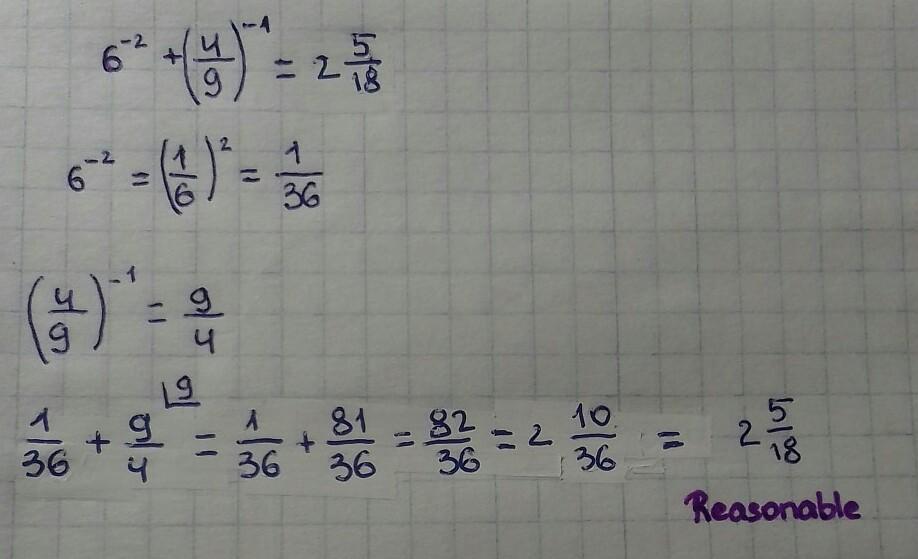 6⁻² + (4/9)⁻¹ = 2 5/18
6⁻² = (1/6)² = 1/36
(4/9)⁻¹ = 9/4
1/36 + 9/4 ⌊9 = 1/36 + 81/36 = 82/36 = 2 10/36 = 2 5/18
Reasonable